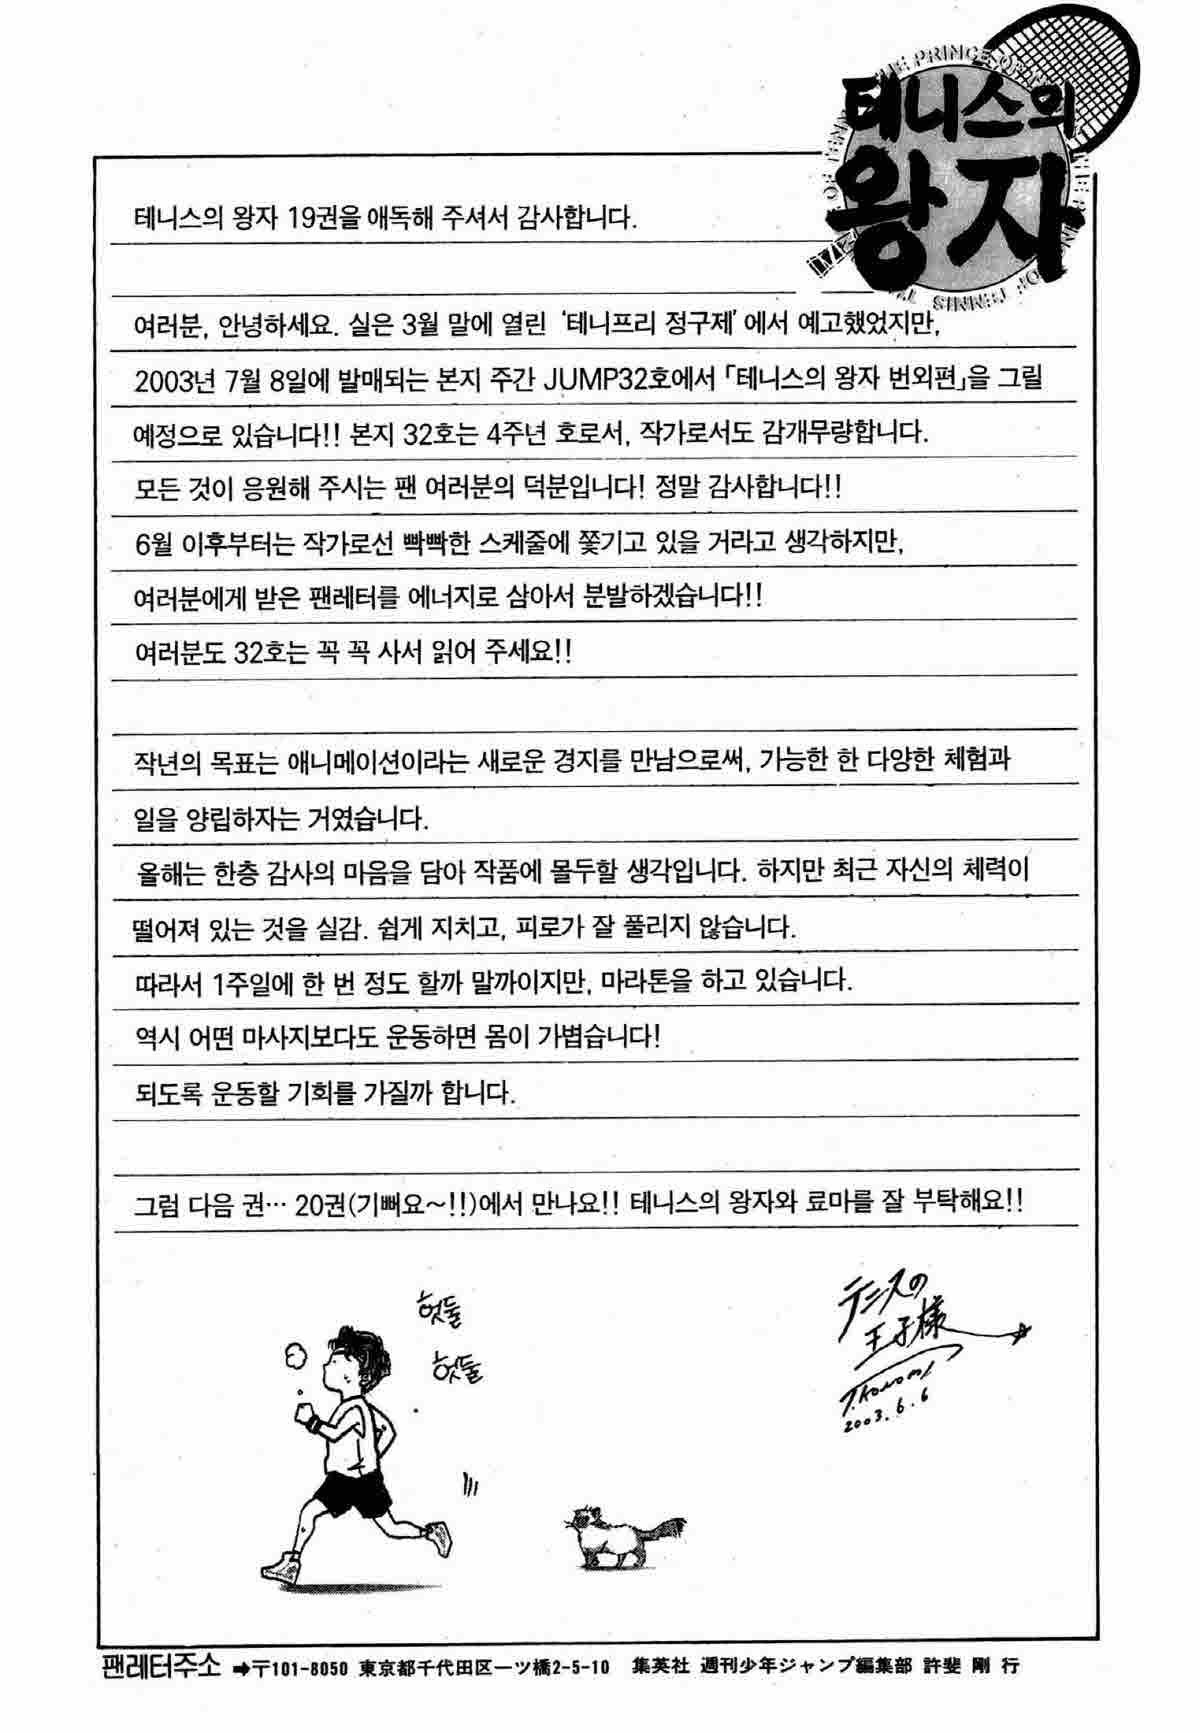 THE PRINCE OF TENNIS
테니스의
왕자
테니스의 왕자 19권을 애독해 주셔서 감사합니다.
여러분, 안녕하세요. 실은 3월 말에 열린 ‘테니프리 정구제’에서 예고했었지만,
2003년 7월 8일에 발매되는 본지 주간 JUMP32호에서 「테니스의 왕자 번외편」을 그릴
예정으로 있습니다!! 본지 32호는 4주년 호로서, 작가로서도 감개무량합니다.
모든 것이 응원해 주시는 팬 여러분의 덕분입니다! 정말 감사합니다!!
6월 이후부터는 작가로선 빡빡한 스케줄에 쫓기고 있을 거라고 생각하지만,
여러분에게 받은 팬레터를 에너지로 삼아서 분발하겠습니다!!
여러분도 32호는 꼭 꼭 사서 읽어 주세요!!
작년의 목표는 애니메이션이라는 새로운 경지를 만남으로써, 가능한 한 다양한 체험과
일을 양립하자는 거였습니다.
올해는 한층 감사의 마음을 담아 작품에 몰두할 생각입니다. 하지만 최근 자신의 체력이
떨어져 있는 것을 실감. 쉽게 지치고, 피로가 잘 풀리지 않습니다.
따라서 1주일에 한 번 정도 할까 말까이지만, 마라톤을 하고 있습니다.
역시 어떤 마사지보다도 운동하면 몸이 가볍습니다!
되도록 운동할 기회를 가질까 합니다.
그럼 다음 권… 20권(기뻐요~!!)에서 만나요!! 테니스의 왕자와 료마를 잘 부탁해요!!
헛둘
헛둘
テニスの
王子様
T.Konomi
2003.6.6
팬레터주소 ➡〒101-8050 東京都千代田区一ツ橋2-5-10 集英社 週刊少年ジャンプ編集部 許斐 剛 行